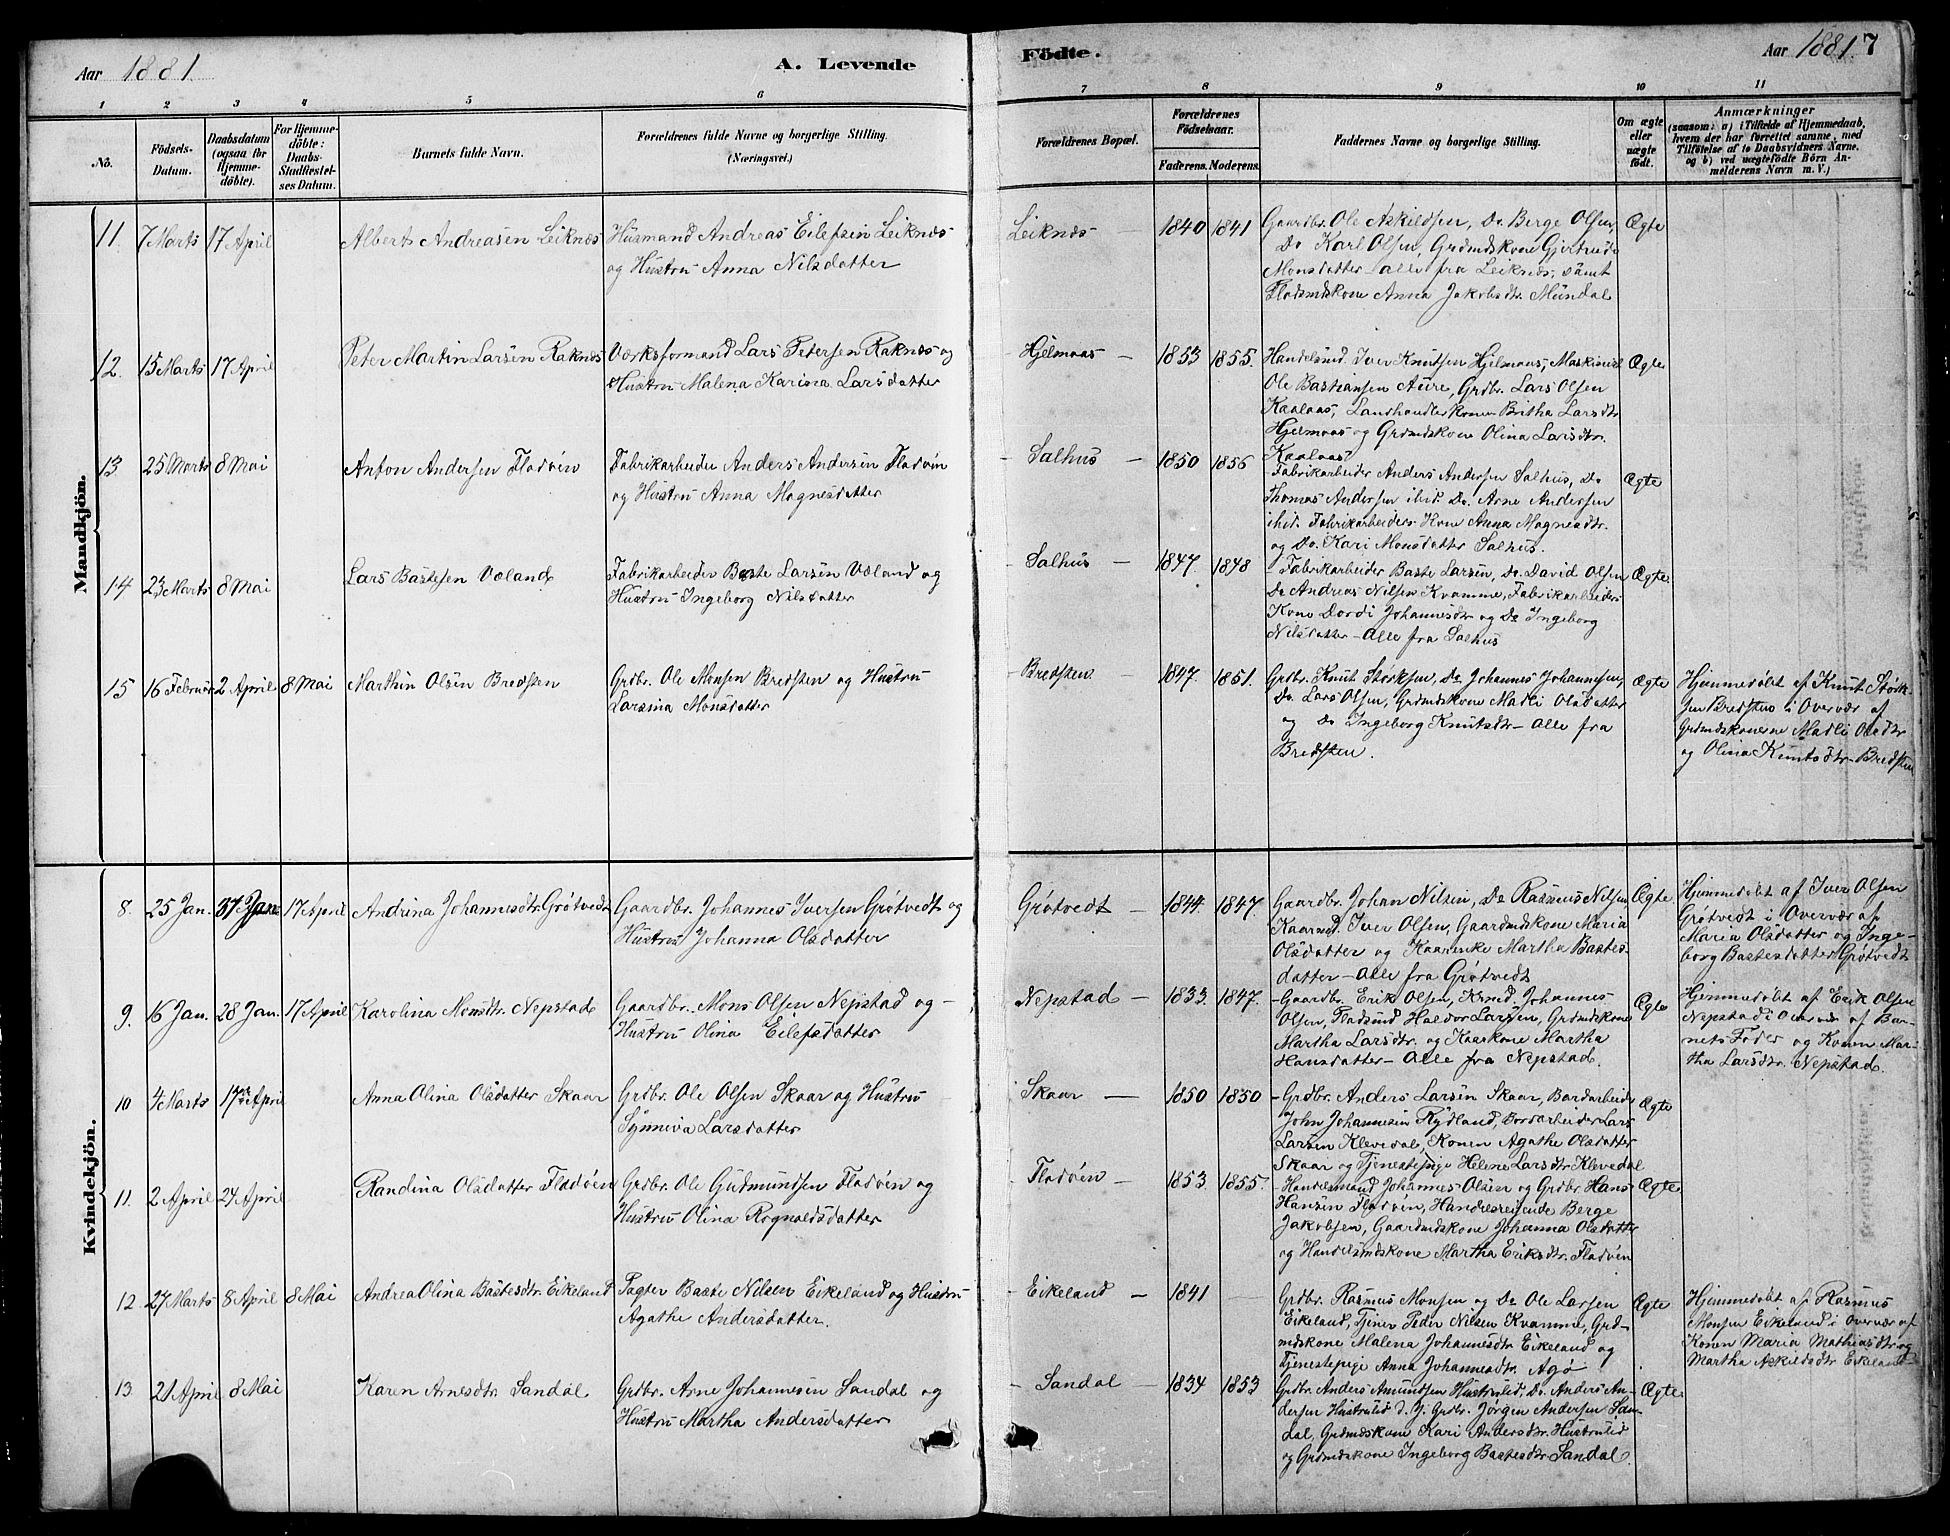 Aar 1881
A. Levende
Födte.
Aar 1881. 7
1 2 3 4 5 6 7 8 9 10 11
No.
Födsels-
Datum.
Daabsdatum
(ogsaa for
Hjemme-
döbte).
For Hjemme-
döbte:
Daabs-
Stadfæstel-
ses Datum.
Barnets fulde Navn.
Forældrenes fulde Navne og borgerlige Stilling.
(Næringsvei.)
Forældrenes Bopæl.
Forældrenes
Födselsaar.
Faderens. Moderens.
Faddernes Navne og borgerlige Stilling.
Om ægte
eller
uægte
födt.
Anmærkninger
(saasom: a) i Tilfælde af Hjemmedaab,
hvem der har forrettet samme, med
Tilföielse af to Daabsvidners Navne,
og b) ved uægtefödte Börn An-
melderens Navn m. V.)
Mandkjön.
11. 7 Marts 17 April Albert Andreasen Leiknæs Husmand Andreas Eilefsen Leiknæs
og Hustru Anna Nilsdatter
Leiknæs 1840 1841 Gaardbr. Ole Askildsen, Do Berge Olsen, Ægte
Do Karl Olsen, Grdmdskone Gjertrude
Monsdatter - alle fra Leiknæs, samt
Fladsmdskone Anna Jakobsdtr. Mundal
12. 15 Marts 17 April Peter Martin Larsen Raknæs Værksformand Lars Petersen Raknæs og
Hustru Malena Karina Larsdatter
Hjelmaas 1853 1855. Handelsmd. Iver Knutsen Hjelmaas, Maskinist Ægte
Ole Bastiansen Aure, Grdbr. Lars Olsen
Kaalaas, Landhandlerkonen Britha Larsdtr.
Hjelmaas og Grdmdskone Olina Larsdtr.
Kaalaas
13. 25 Marts 8 Mai Anton Andersen Fladvin Fabrikarbeider Anders Andersen Fladvin
og Hustru Anna Magnesdatter
Salhus 1850 1856 Fabrikarbeider Anders Andersen Salhus, Do Ægte
Thomas Andersen ibid. Do. Arne Andersen
ibid. Fabrikarbeiders Kone Anna Magnesdtr.
og Do. Kari Monsdatter Salhus.
14 23 Marts 8 Mai Lars Bastesen Væland Fabrikarbeider Baste Larsen Væland og
Hustru Ingeborg Nilsdatter
Salhus 1847. 1848 - Fabrikarbeider Baste Larsen, Do. David Olsen Ægte
Do Andreas Nilsen Kvamme, Fabrikarbeiders
Kone Dordi Johannesdtr og Do Ingeborg
Nilsdatter - Alle fra Salhus
15 16 Februar 2 April 8 Mai Marthin Olsen Bredsten Grdbr. Ole Monsen Bredsten og Hustru
Larsina Monsdatter
Bredsten 1847. 1851. Grdbr. Knut Störksen, Do Johannes Johannesen, Ægte
Do. Lars Olsen, Grdmdskone Madli Olsdatter
og Do Ingeborg Knutsdtr - Alle fra
Bredsten.
Hjemmedøbt af Knut Störk-
sen Bredsten i Overvær af
Grdmdskonerne Madli Olsdtr
og Olina Knutsdtr - Bredsten
Kvindekjön.
8. 25 Jan. 31 Jan 17 April Andrina Johannesdtr Grøtvedt Gaardbr. Johannes Iversen Grøtvedt og
Hustru Johanna Olsdatter
Grøtvedt 1844. 1847. Gaardbr. Johan Nilsen, Do Rasmus Nilsen Ægte
Kaarmd. Iver Olsen, Gaardmdskone Maria
Olsdatter og Kaarenke Martha Bastes-
datter - Alle fra Grøtvedt
Hjemmedøbt af Iver Olsen
Grøtvedt i Overvær af
Maria Olsdatter og Inge-
borg Bastesdatter Grøtvedt
9. 16 Jan. 28 Jan. 17 April Karolina Monsdtr. Nepstad Gaardbr. Mons Olsen Nepstad og
Hustru Olina Eilefsdatter
Nepstad 1833. 1847. - Gaardbr. Erik Olsen, Krmd. Johannes Ægte
Olsen, Fladsmd Haldor Larsen, Grdmdskone
Martha Larsdtr. og Kaarkone Martha
Hansdatter - Alle fra Nepstad.
Hjemmedøbt af Erik Olsen
Nepstad i Overvær af Bar-
nets Fader og Konen Mar-
tha Larsdtr. Nepstad.
10 4 Marts 17 April Anna Olina Olsdatter Skaar Grdbr. Ole Olsen Skaar og Hustru
Synneva Larsdatter
Skaar 1850 1850 - Grdbr. Anders Larsen Skaar, Bordarbeider Ægte
John Johannesen Rydland, Bordarbeider Lars
Larsen Klevedal, Konen Agathe Olsdatter
Skaar og Tjenestepige Helene Larsdtr Klevedal
11. 2 April 24 April Randina Olsdatter Fladvin Grdbr. Ole Gudmundsen Fladvin og
Hustru Olina Rognaldsdatter
Fladvin 1853. 1855. - Handelsmand Johannes Olsen og Grdbr. Hans Ægte
Hansen Fladvin, Handelsreisende Berge
Jakobsen, Gaardmdskone Johanna Olsdatter
og Handelsmdskone Martha Eriksdtr. Fladvin
12 27 Marts 8 April 8 Mai Andrea Olina Bastesdtr. Eikeland Pagter Baste Nilsen Eikeland og Hustru
Agathe Andersdatter.
Eikeland 1841 Grdbr. Rasmus Monsen og Do Ole Larsen Ægte
Eikeland, Tjener Peder Nilsen Kvamme, Grd-
mdskone Malena Johannesdtr Eikeland og
Tjenestepige Anna Johannesdtr. Agø
Hjemmedøbt af Rasmus
Monsen Eikeland i Overvær af
Konen Maria Mathiasdtr og
Martha Askildsdtr Eikeland
13 21 April 8 Mai Karen Arnesdtr. Sandal Grdbr. Arne Johannesen Sandal og
Hustru Martha Andersdatter
Sandal 1834 1853 Grdbr. Anders Amundsen Hustrulid, Do. Anders An- Ægte
dersen Hustrulid d. Y. Grdbr. Jörgen Andersen San-
dal, Grdmdskone Kari Andersdtr. Hustrulid
og Grdmdskone Ingeborg Bastesdtr Sandal.